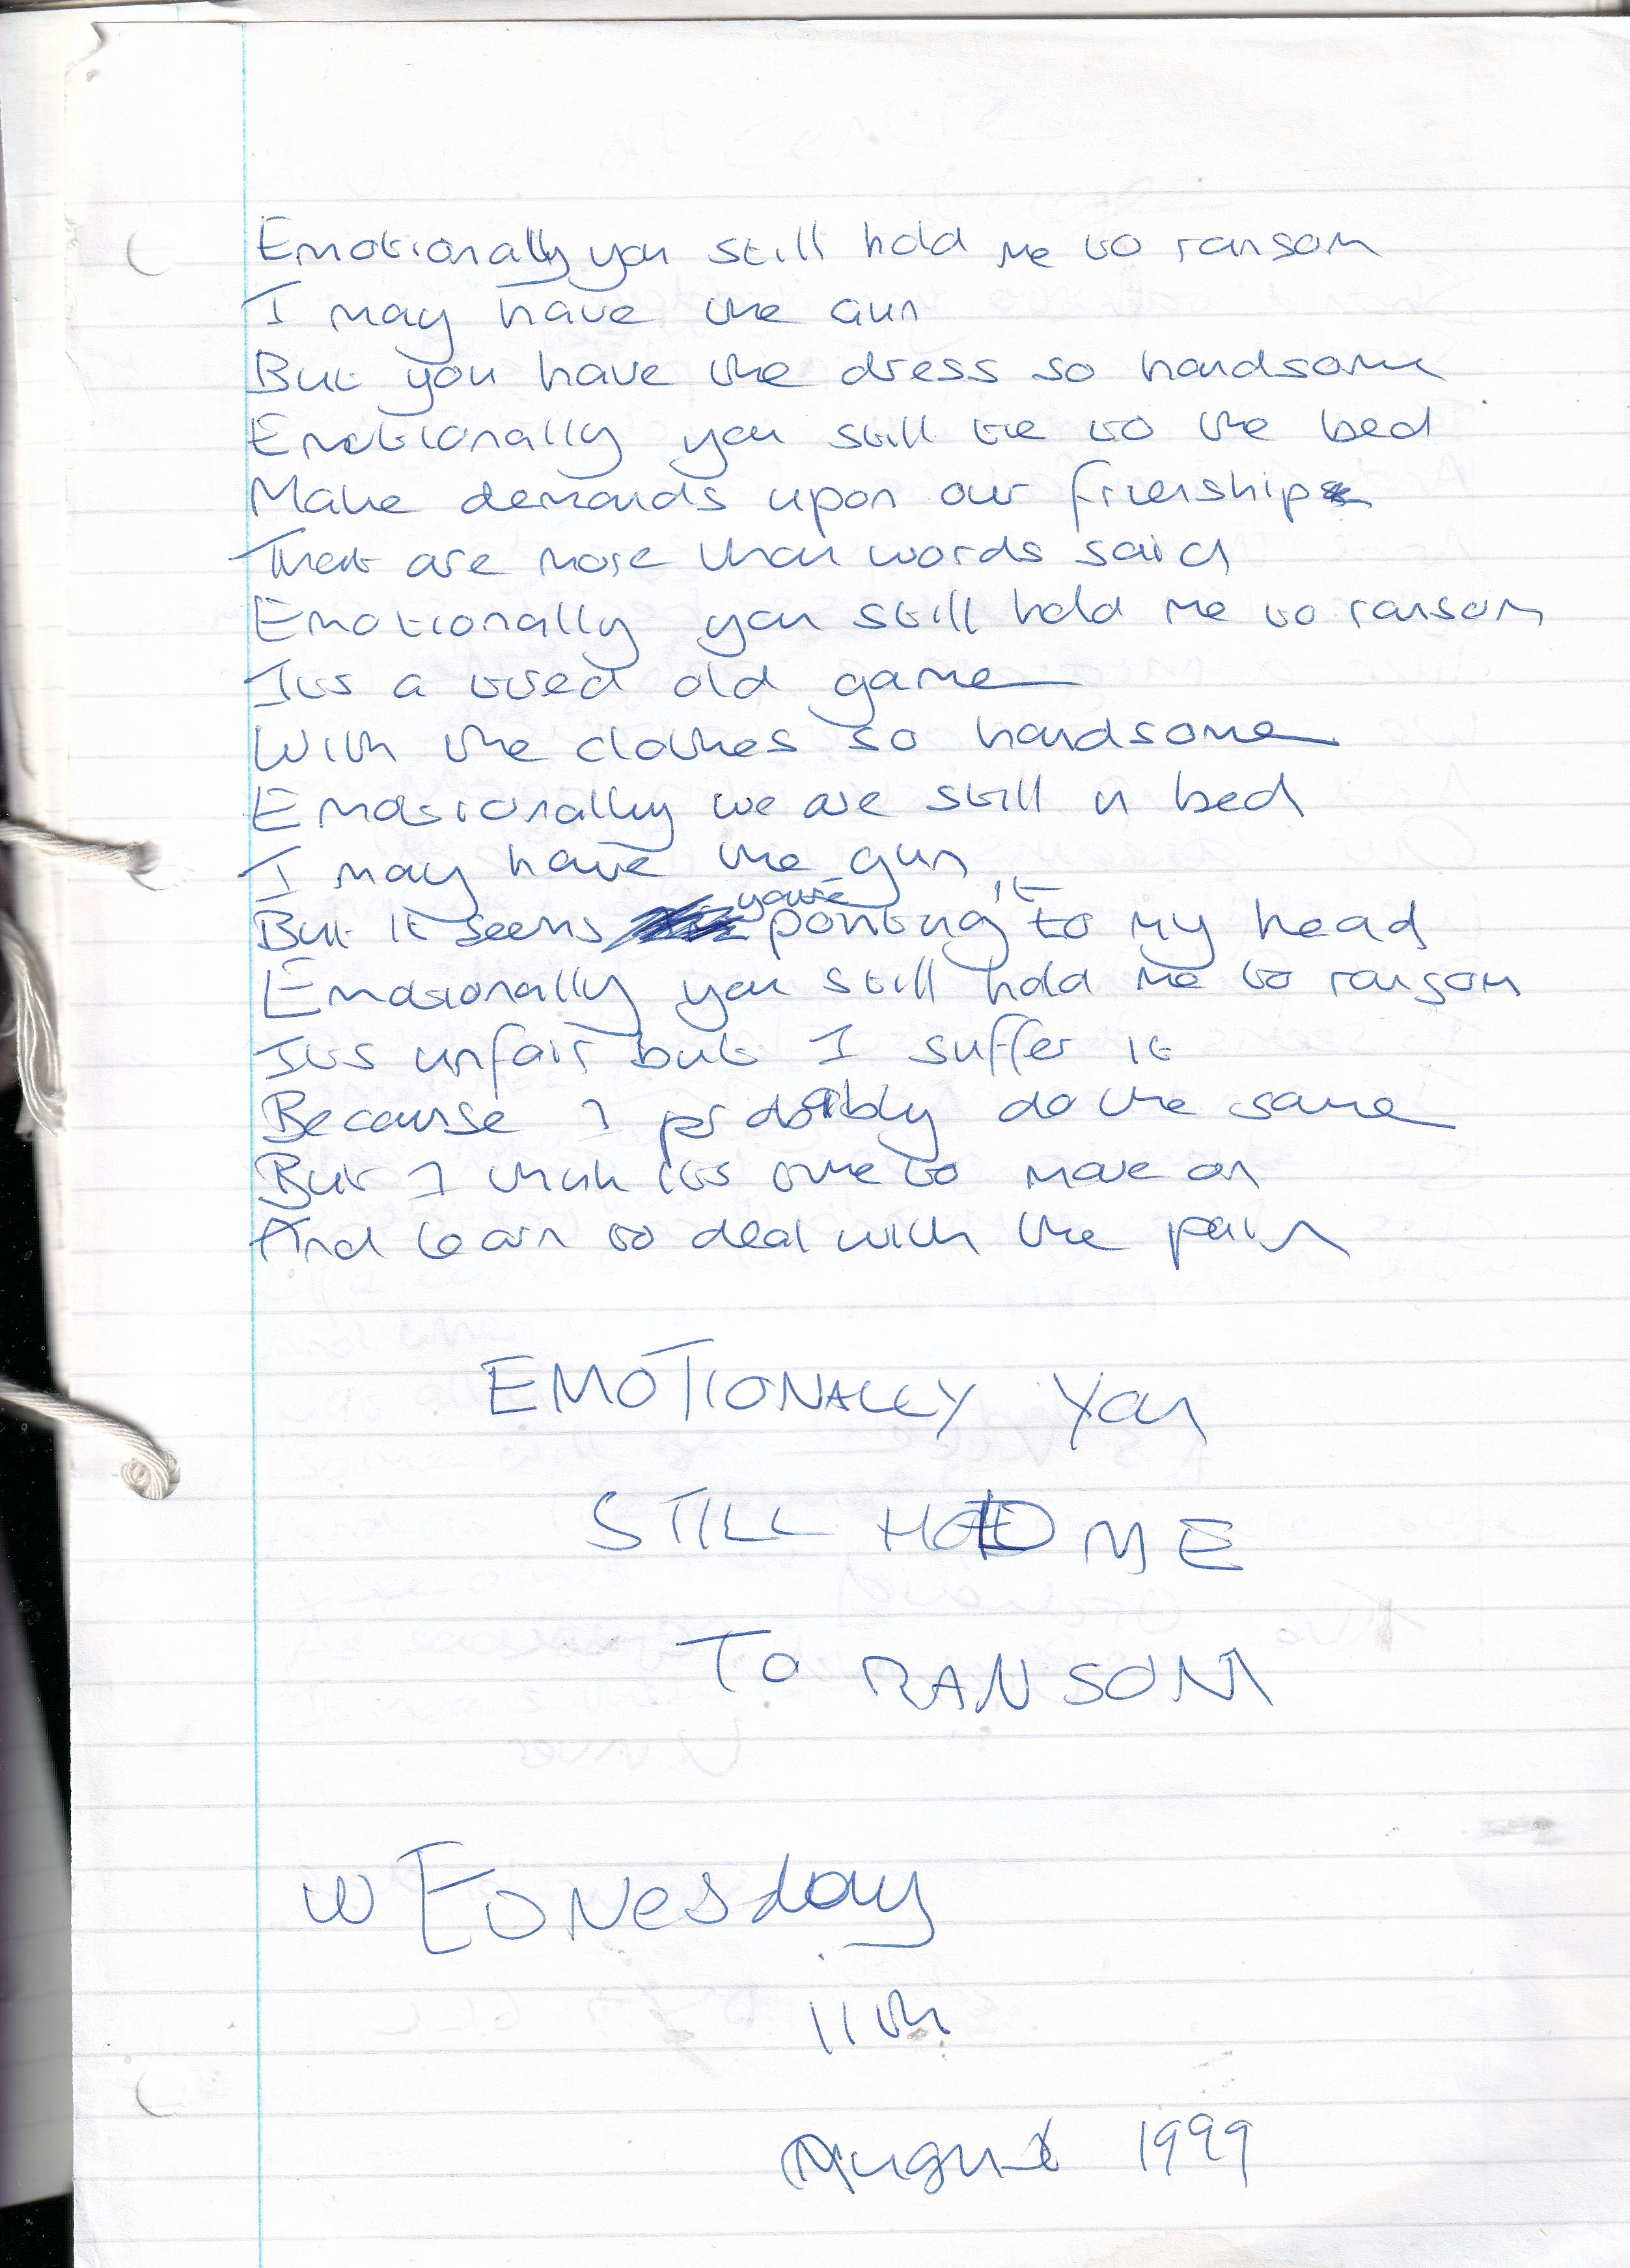 Emotionally you still hold me to ransom
I may have the gun
But you have the dress so handsome
Emotionally you still tie to the bed
Make demands upon our frienship
That are more than words said
Emotionally you still hold me to ransom
Its a tired old game
With the clothes so handsome
Emotionally we are still in bed
I may have the gun
But it seems you're pointing it to my head
Emotionally you still hold me to ransom
Its unfair but I suffer it
Because I probably do the same
But I think its time to move on
And learn to deal with the pain
EMOTIONALLY YOU
STILL HOLD ME
TO RANSOM
WEDNesday
11th
August 1999